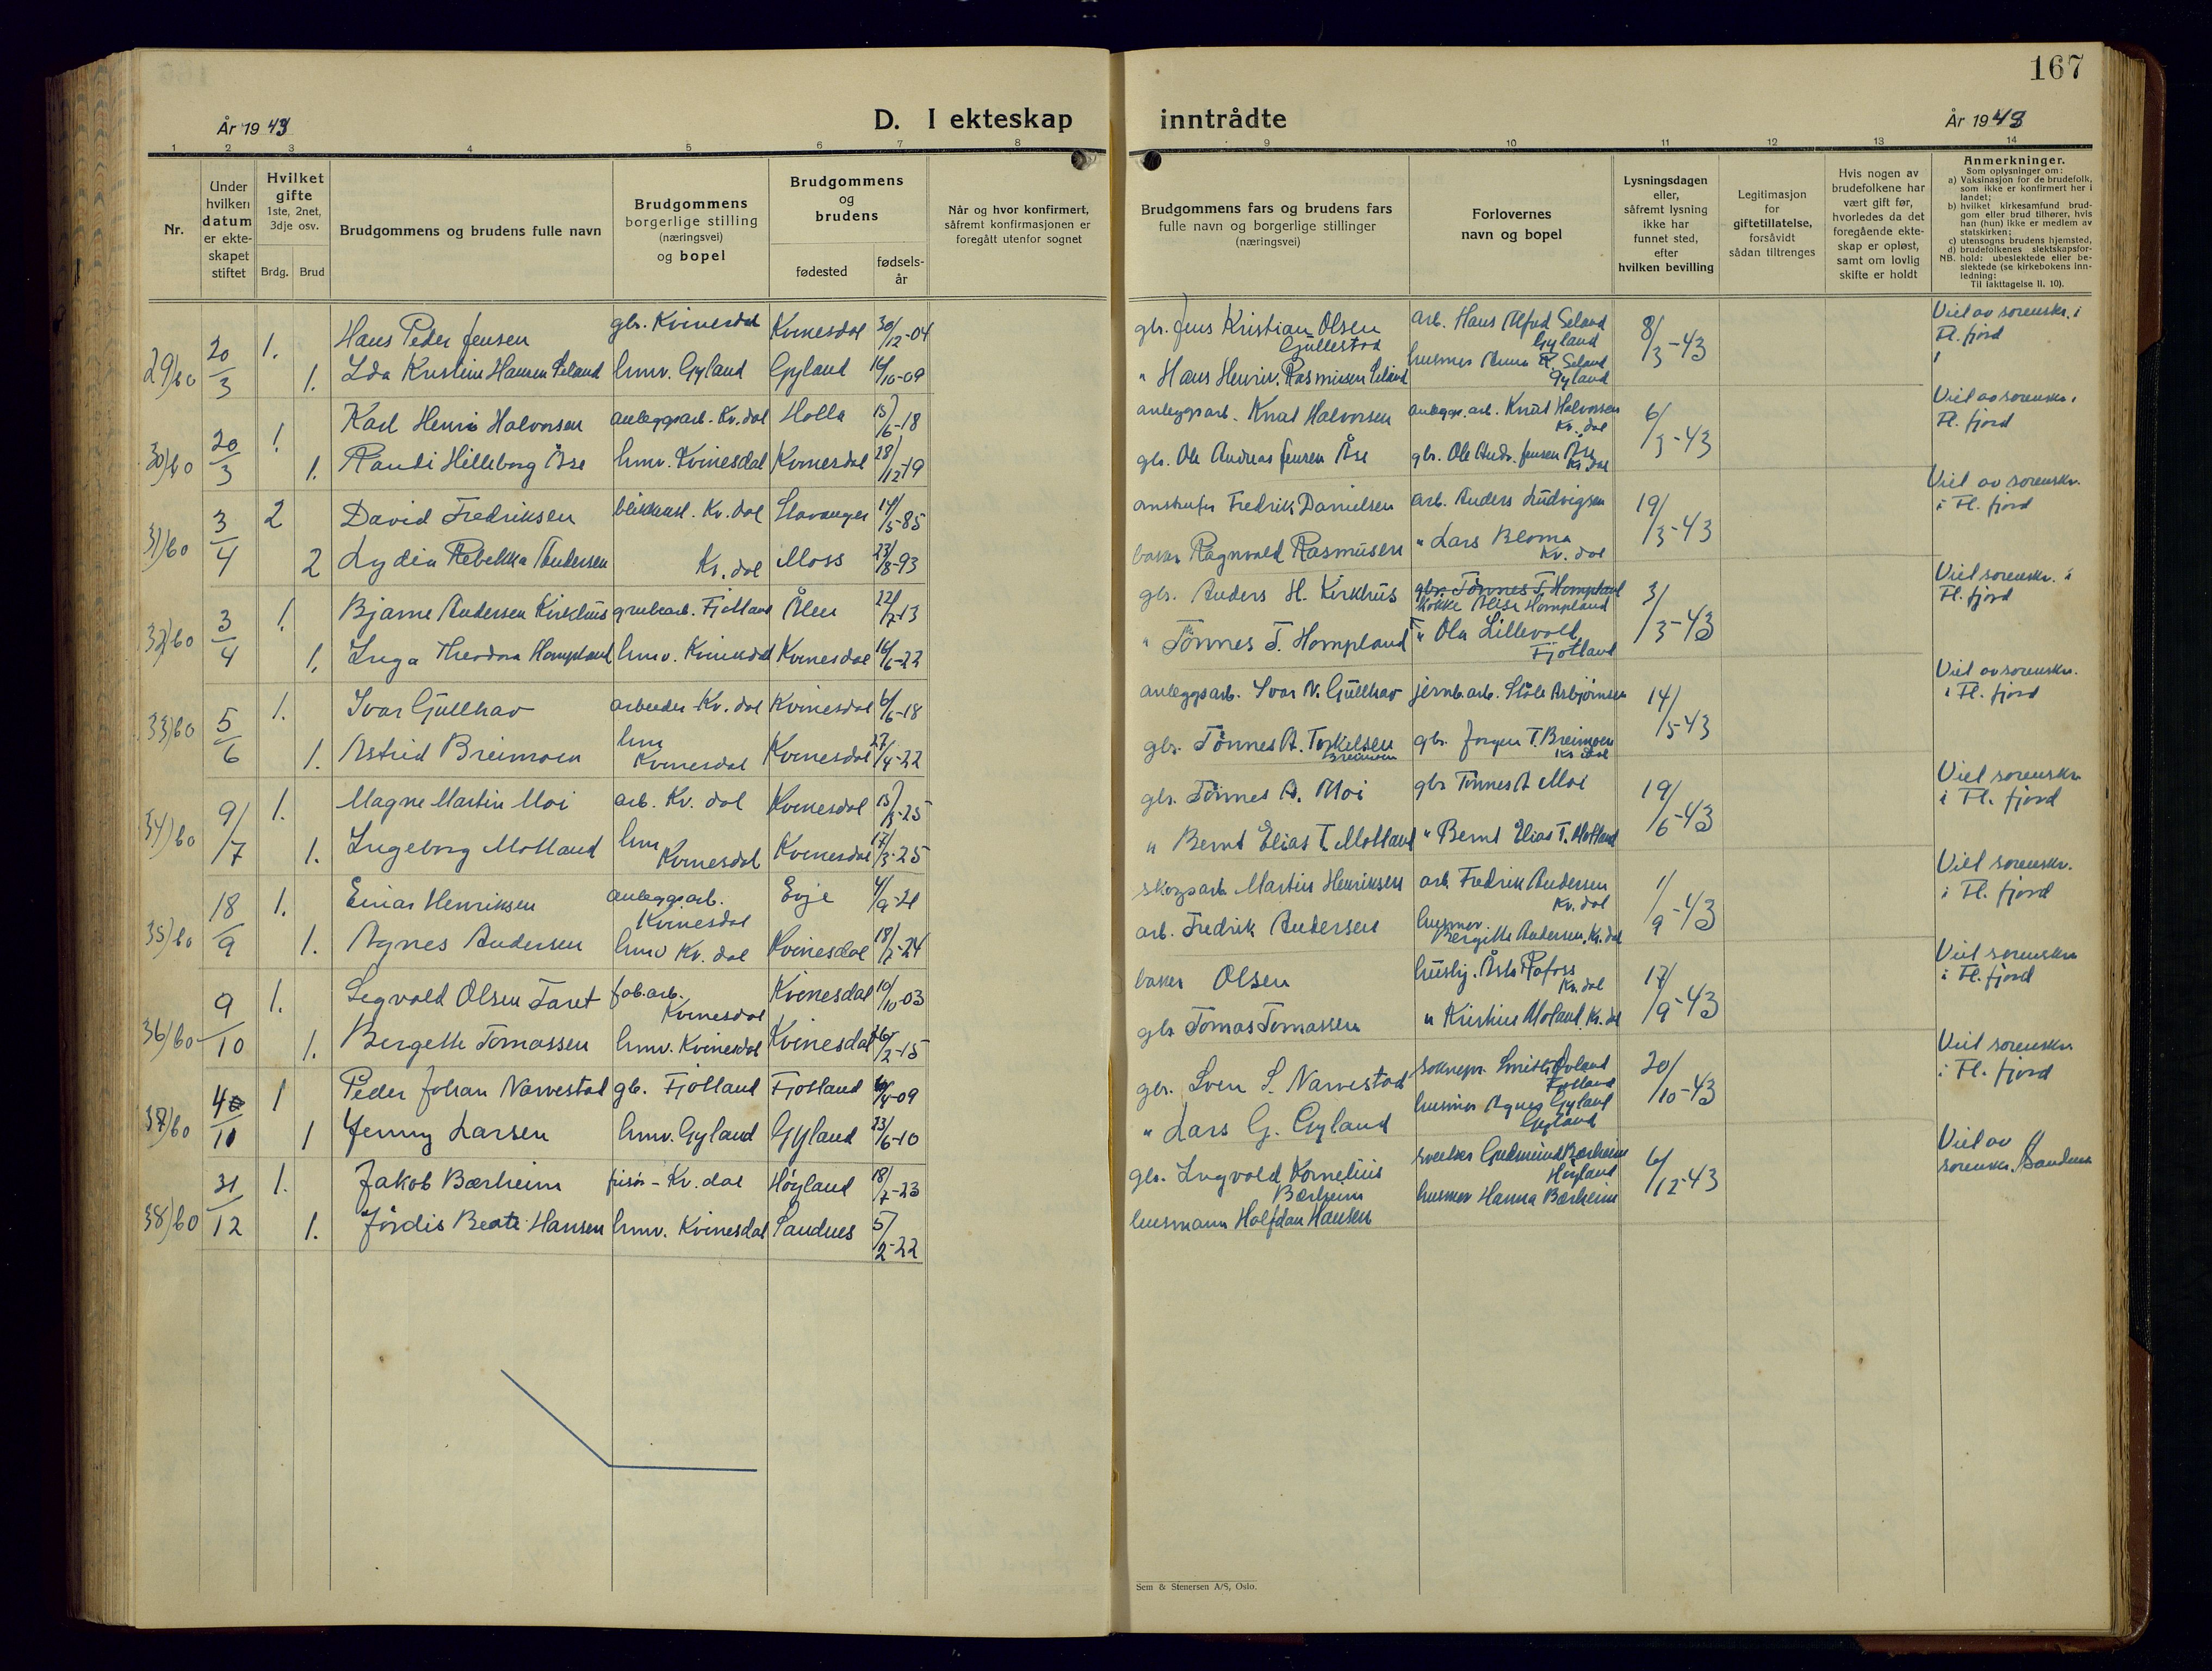 167
År 1943
D. I ekteskap inntrådte
År 1943
1 2 3 4 5 6 7 8 9 10 11 12 13 14
Nr.
Under
hvilken
datum
er ekte-
skapet
stiftet
Hvilket
gifte
1ste, 2net,
3dje osv.
Brdg. Brud
Brudgommens og brudens fulle navn
Brudgommens
borgerlige stilling
(næringsvei)
og bopel
Brudgommens
og
brudens
fødested
fødsels-
år
Når og hvor konfirmert,
såfremt konfirmasjonen er
foregått utenfor sognet
Brudgommens fars og brudens fars
fulle navn og borgerlige stillinger
(næringsvei)
Forlovernes
navn og bopel
Lysningsdagen
eller,
såfremt lysning
ikke har
funnet sted,
efter
hvilken bevilling
Legitimasjon
for
giftetillatelse,
forsåvidt
sådan tiltrenges
Hvis nogen av
brudefolkene har
vært gift før,
hvorledes da det
foregående ekte-
skap er opløst,
samt om lovlig
skifte er holdt
Anmerkninger.
Som oplysninger om:
a) Vaksinasjon for de brudefolk,
som ikke er konfirmert her i
landet;
b) hvilket kirkesamfund brud-
gom eller brud tilhører, hvis
han (hun) ikke er medlem av
statskirken;
c) utensogns brudens hjemsted,
d) brudefolkenes slektskapsfor-
NB. hold: ubeslektede eller be-
slektede (se kirkebokens inn-
ledning:
Til iakttagelse II. 10).
29) bo 20/3 1. Hans Peder Jensen gbr. Kvinesdal Kvinesdal 30/12-04 gbr. Jens Kristian Olsen Gullestad arb. Hans Alfred Seland Gyland 8/3-43 Viet av sorenskr. i Fl. fjord
1. Ida Kristine Hansen Seland hmv. Gyland Gyland 16/10-09 " Hans Henrik Rasmussen Seland husmor Anna R. Seland Gyland
30) bo 20/3 1. Karl Henri Halvorsen anleggsarb. Kv. dal Holla 15/6-18 anleggsarb. Knut Halvorsen anleggs. arb. Knut Halvorsen Kv. dal 6/3-43 Viet av sorenskr. i Fl. fjord
1. Randi Hilleborg Åse hmv. Kvinesdal Kvinesdal 28/12-19 gbr. Ole Andreas Jensen Åse gbr. Ole Andr. Jensen Åse Kv. dal
31) bo 3/4 2 David Fredriksen Kv. dal Stavanger 14/5-85 Fredrik Danielsen arb. Anders Ludvigsen 19/3-43 Viet av sorenskr. i Fl. fjord
2 Lydia Rebekka Andersen Kv. dal Moss 23/8-93 baker Ragnvald Rasmussen " Lars Bloma Kv. dal
32) bo 3/4 1. Bjarne Andersen Kirkhus grubearb. Fjotland Ålen 22/7-13 gbr. Anders H. Kirkhus gbr. Tønnes T. Hompland kokke Alise Hompland 3/3-43 Viet sorenskr. i Fl. fjord
1. Inga Theodora Hompland hmv. Kvinesdal Kvinesdal 16/6-22 " Tønnes T. Hompland " Ola Lillevold Fjotland
33) bo 5/6 1. Ivar Gullhav arbeider Kv. dal Kvinesdal 6/6-18 anleggsarb. Ivar N. Gullhav jernb. arb. Ståle Asbjørnsen 14/5-43 Viet av sorenskr. i Fl. fjord
1. Astrid Breimoen hmv Kvinesdal Kvinesdal 27/4-22 gbr. Tønnes A. Torkelsen Breimoen gbr. Jørgen T. Breimoen Kv. dal
34) bo 9/7 1. Magne Martin Moi arb. Kv. dal Kvinesdal gbr. Tønnes A. Moi gbr Tønnes A Moi 19/6-43 Viet sorenskr i Fl. fjord
1. Ingeborg Motland hmv Kvinesdal Kvinesdal 17/3-25 " Bernt Elias T. Motland " Bernt Elias T. Motland
35) bo 18/9 1. Einar Henriksen anleggsarb. Kvinesdal Evje 4/9-21 skogsarb Martin Henriksen arb. Fredrik Andersen Kv. dal 1/9-43 Viet sorenskr. i Fl. fjord
1. Agnes Andersen hmv Kv. dal Kvinesdal 18/7-24 arb. Fredrik Andersen husmor. Bergitte Andersen, Kv. dal
36) bo 9/10 1. Sigvald Olsen Faret fab. arb. Kvinesdal Kvinesdal 10/10-03 baker Olsen hushj. Åsta Rafoss Kv. dal 17/9-43 Viet sorenskr i Fl. fjord
1. Bergette Tomassen hmv. Kvinesdal Kvinesdal 26/2-15 gbr Tomas Tomassen " Kristine Moland Kv. dal
37) bo 4/10 1 Peder Johan Narvestad gb. Fjotland Fjotland gbr. Sven S. Narvestad Fjotland 20/10-43 Viet sorenskr i Fl. fjord
1 Jenny Larsen hmv. Gyland Gyland 23/6-10 " Lars G. Gyland husmor Agnes Gyland Gyland
38) bo 31/12 1. Jakob Bærheim frisør - Kv. dal Høyland 18/7-23 gbr. Ingvald Kornelius Bærheim Gudmund Bærheim Høyland 6/12-43 Viet av sorenskr. Sandnes
1. Jordis Beate Hansen hmv. Kvinesdal Sandnes 5/2-22 husmann Halfdan Hansen husmor Hanna Bærheim
Sem & Stenersen A/S, Oslo.